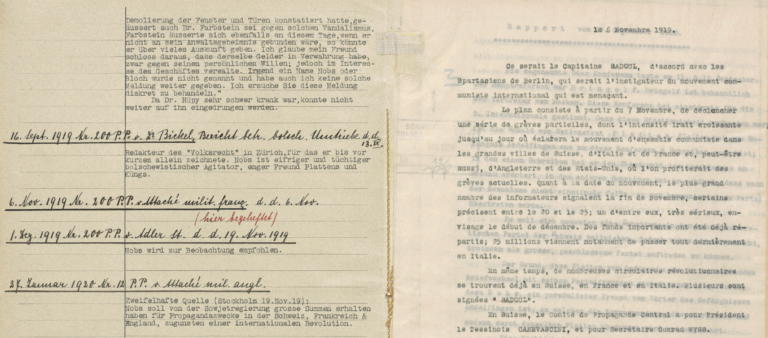 Demolierung der Fenster und Türen konstatiert hatte, ge-
äussert auch Dr. Farbstein sei gegen solchen Vandalismus,
Farbstein äusserte sich ebenfalls an diesem Tage, wenn er
nicht an sein Anwaltsgeheimnis gebunden wäre, so könnte
er über vieles Auskunft geben. Ich glaube mein Freund
schloss daraus, dass derselbe Gelder in Verwahrung habe,
zwar gegen seinen persönlichen Willen; jedoch im Interes-
se des Geschäftes verwalte. Irgend ein Name Nobs oder
Bloch wurde nicht genannt und habe auch ich keine solche
Meldung weiter gegeben. Ich ersuche Sie diese Meldung
diskret zu behandeln."
Da Dr. Hüny sehr schwer krank war, konnte nicht
weiter auf ihn eingedrungen werden.
16. Sept. 1919 Nr. 200 P.P. v. Dr Bickel, Bericht bch. bolsch. Umtriebe d. d.
13. IX.
Redakteur des "Volksrecht" in Zürich, für das er bis vor
kurzem allein zeichnete. Nobs ist eifriger und tüchtiger
bolschewistischer Agitator, enger Freund Plattens und
Küngs.
6. Nov. 1919 Nr. 200 P.P. v. Attaché milit. franç. d. d. 6. Nov.
(hier beigeheftet)
1. Dez. 1919 Nr. 200 P.P. v. Adler St. d. d. 19. Nov. 1919
Nobs wird zur Beobachtung empfohlen.
27. Januar 1920 Nr. 12 P.P. v. Attaché mil. angl.
Zweifelhafte Quelle (Stockholm 19.Nov.19):
Nobs soll von der Sowjetregierung grosse Summen erhalten
haben für Propagandazwecke in der Schweiz, Frankreich &
England, zugunsten einer internationalen Revolution.
Rapport
le 6 Novembre 1919.
Ce serait le Capitaine SADOUL, d'accord avec les
Spartasiens de Berlin, qui serait l'instigateur du mouvement com-
muniste international qui est menaçant.
Le plan consiste à partir du 7 Novembre, de déclencher
une série de grèves partielles, dont l'intensité irait croissante
jusqu'au jour où éclatera le mouvement d'ensemble communiste dans
les grandes villes de Suisse, d'Italie et de France et, peut-être
aussi, d'Angleterre et des Etats-Unis, où l'on profiterait des
grèves actuelles. Quant à la date du mouvement, le plus grand
nombre des informateurs signalent la fin de Novembre, certains
précisent entre le 20 et le 25; un d'entre eux, très sérieux, en-
visage le début de décembre. Des fonds importants ont été déjà ré-
partis; 25 millions viennent notament de passer tout dernièrement
en Italie.
En même temps, de nombreuses circulaires révolutionnaires
se trouvent déjà en Suisse, en France et en Italie. Plusieurs sont
signées " SADOUL".
En Suisse, le Comité de Propagande Central a pour Président
le Tessinois CANEVASCINI, et pour Secrétaire Conrad WYSS.